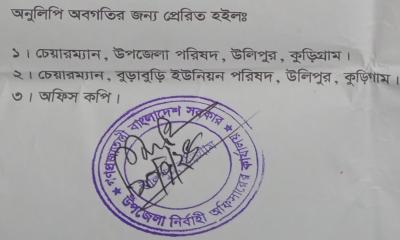 অনুলিপি অবগতির জন্য প্রেরিত হইলঃ
১। চেয়ারম্যান, উপজেলা পরিষদ, উলিপুর, কুড়িগ্রাম।
২। চেয়ারম্যান, বুড়াবুড়ি ইউনিয়ন পরিষদ, উলিপুর, কুড়িগ্রাম।
৩। অফিস কপি।
গণপ্রজাতন্ত্রী বাংলাদেশ সরকার
উপজেলা নির্বাহী অফিসারের কার্যালয়